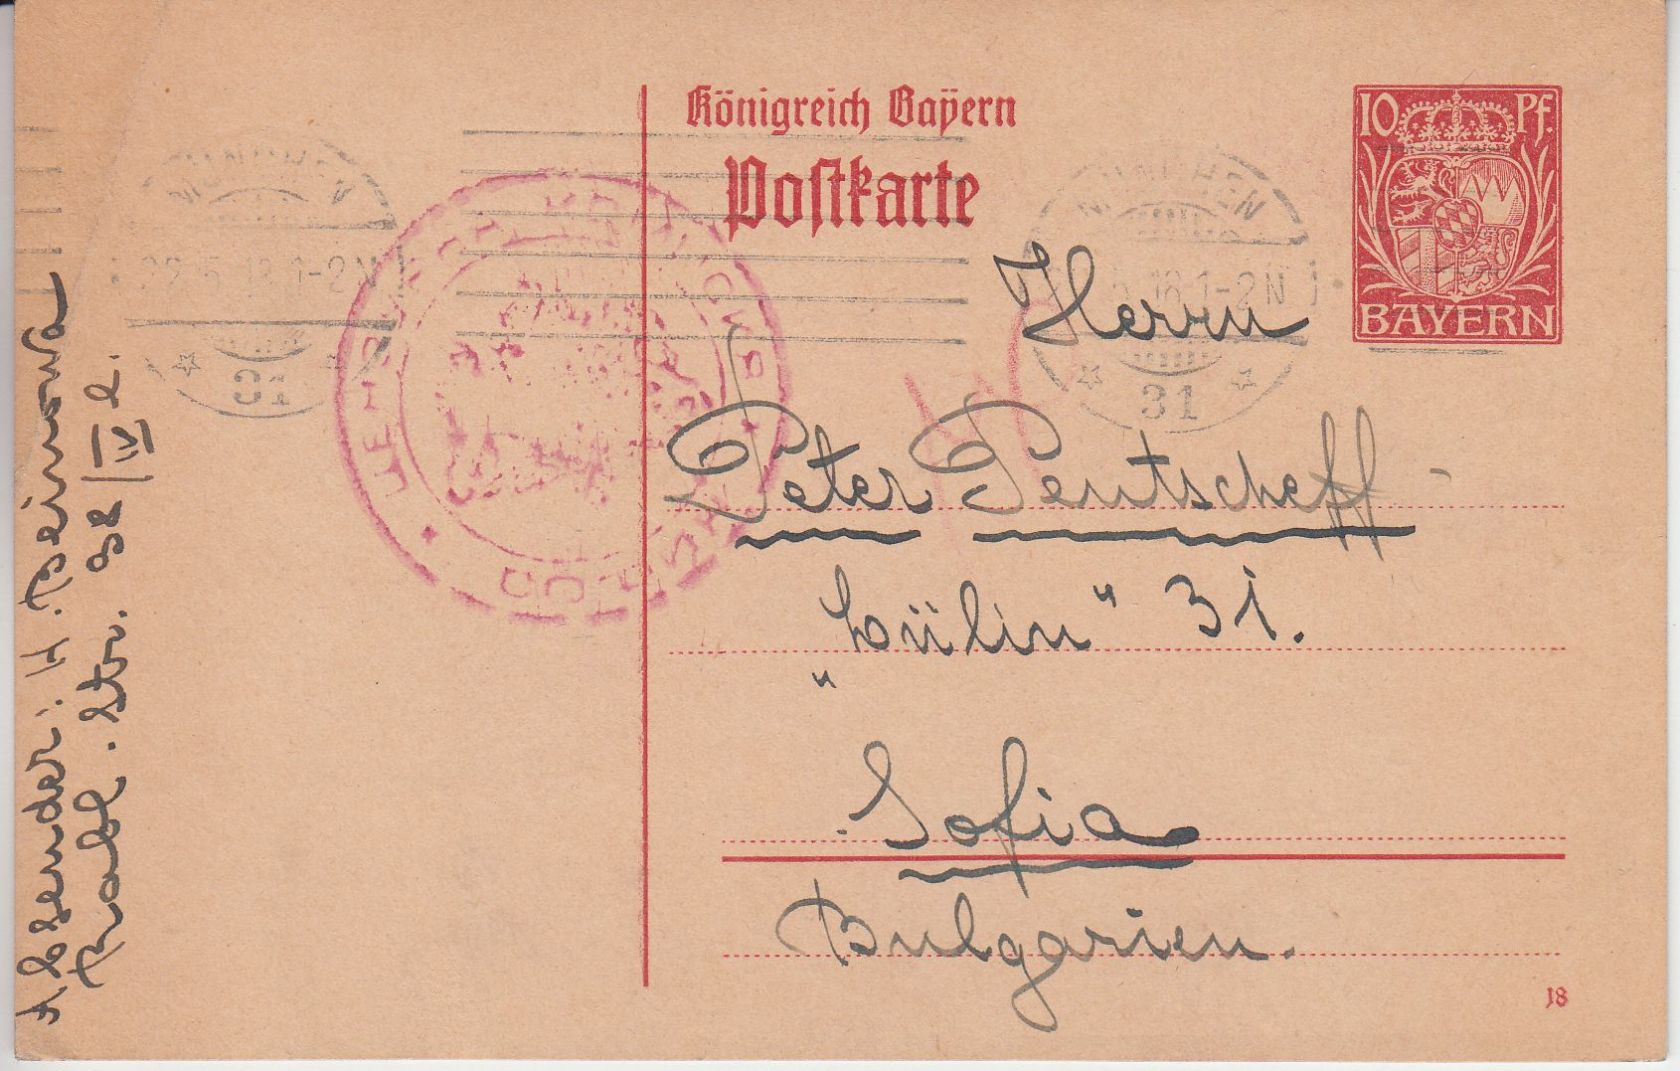 Königreich Bayern
Postkarte
10 Pf.
BAYERN
MÜNCHEN
22.5.18.1-2N
31
MÜNCHEN
5.18.1-2N
31
Herrn
Peter Pentscheff
"Lülin" 31.
Sofia
Bulgarien.
18
Absender: H. Beinowa
Str. 38/IV l.